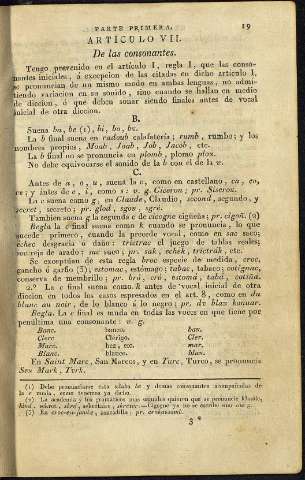 PARTE PRIMERA. 19
ARTÍCULO VII.
De las consonantes.
Tengo prevenido en el artículo I, regla I, que las conso-
nantes iniciales, á excepcion de las citadas en dicho artículo I,
se pronuncian de un mismo modo en ambas lenguas, no admi-
tiendo variacion en su sonido, sino cuando se hallan en medio
de diccion, ó que deben sonar siendo finales antes de vocal
inicial de otra diccion.
B.
Suena ba, be (1), bi, bo, bu.
La b final suena en radoub calafatería; rumb, rumbo; y los
nombres propios, Moab, Joab, Job, Jacob, etc.
La b final no se pronuncia en plomb, plomo plon.
No debe equivocarse el sonido de la b con el de la v.
C.
Antes de a, o, u, suena la c, como en castellano, ca, co,
cu; y antes de e, i, como s: v. g. Ciceron; pr. Siseron.
La c suena como g en Claude, Claudio, second, segundo, y
secret, secreto; pr. glod, sgon, sgré.
Tambien suena g la segunda c de cicogne cigüeña; pr. cigoñ. (2)
Regla La c final suena como k cuando se pronuncia, lo que
sucede primero, cuando la precede vocal, como en sac saco;
échec desgracia ó daño; trictrac el juego de tablas reales;
soc reja de arado; suc suco; pr. sak, echek, trictrak, etc.
Se exceptúan de esta regla broc especie de medida, croc,
gancho ó garfio (3), estomac, estómago; tabac, tabaco; cotignac,
conserva de membrillo; pr. bró, cró, estoma, tabá, cotiñá.
2.º La c final suena como k antes de vocal inicial de otra
diccion en todos los casos espresados en el art. 8, como en du
blanc au noir, de lo blanco á lo negro; pr. du blan kanuar.
Regla. La c final es muda en todas las voces en que tiene por
penúltima una consonante: v. g.
Banc. banco. ban.
Clerc Clérigo. Cler.
Marc. hez, etc. mar.
Blanc. blanco. blan.
En Saint Marc, San Marcos, y en Turc, Turco, se pronuncia
Sen Mark, Turk.
(1) Debe pronunciarse esta sílaba be y demas consonantes acompañadas de
la e muda, como tenemos ya dicho.
3 *